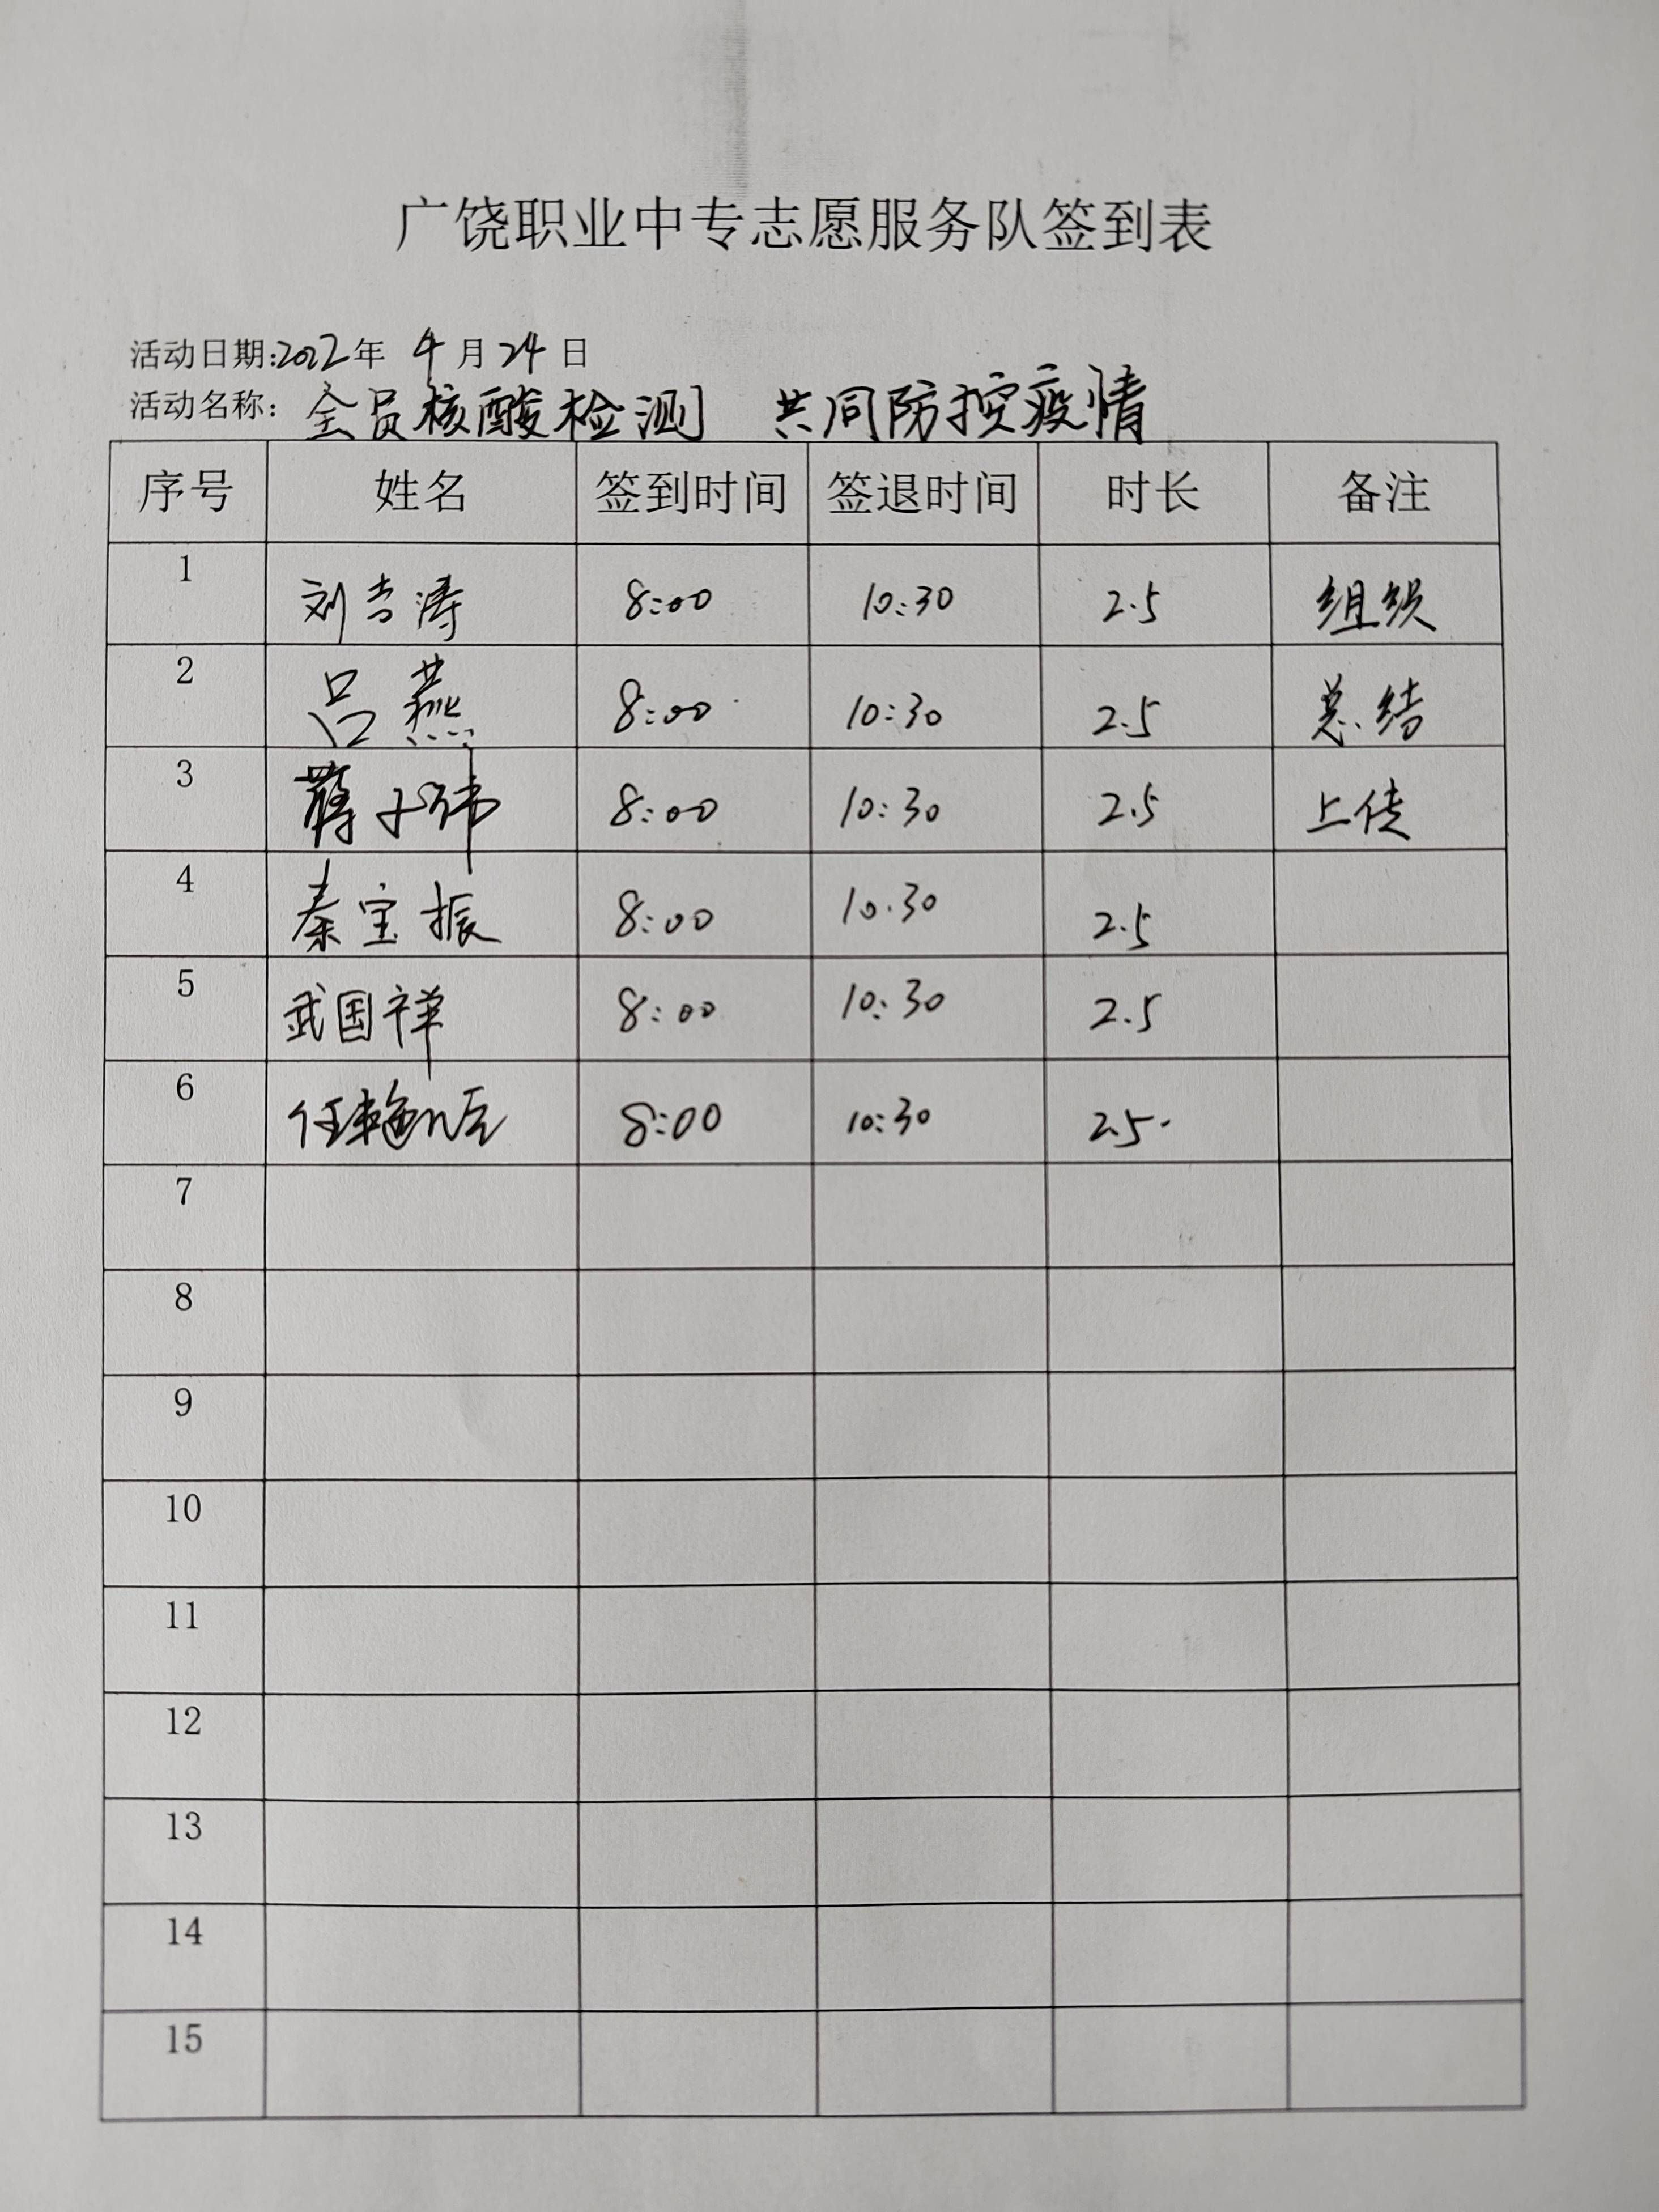 广饶职业中专志愿服务队签到表
活动日期:2022年 4月24日
活动名称：全员核酸检测 共同防控疫情
序号 姓名 签到时间 签退时间 时长 备注
1 刘吉涛 8:00 10:30 2.5 组织
2 吕燕 8:00 10:30 2.5 总结
3 蒋小伟 8:00 10:30 2.5 上传
4 秦宝振 8:00 10.30 2.5
5 武国祥 8:00 10:30 2.5
6 8:00 10:30 2.5
7
8
9
10
11
12
13
14
15